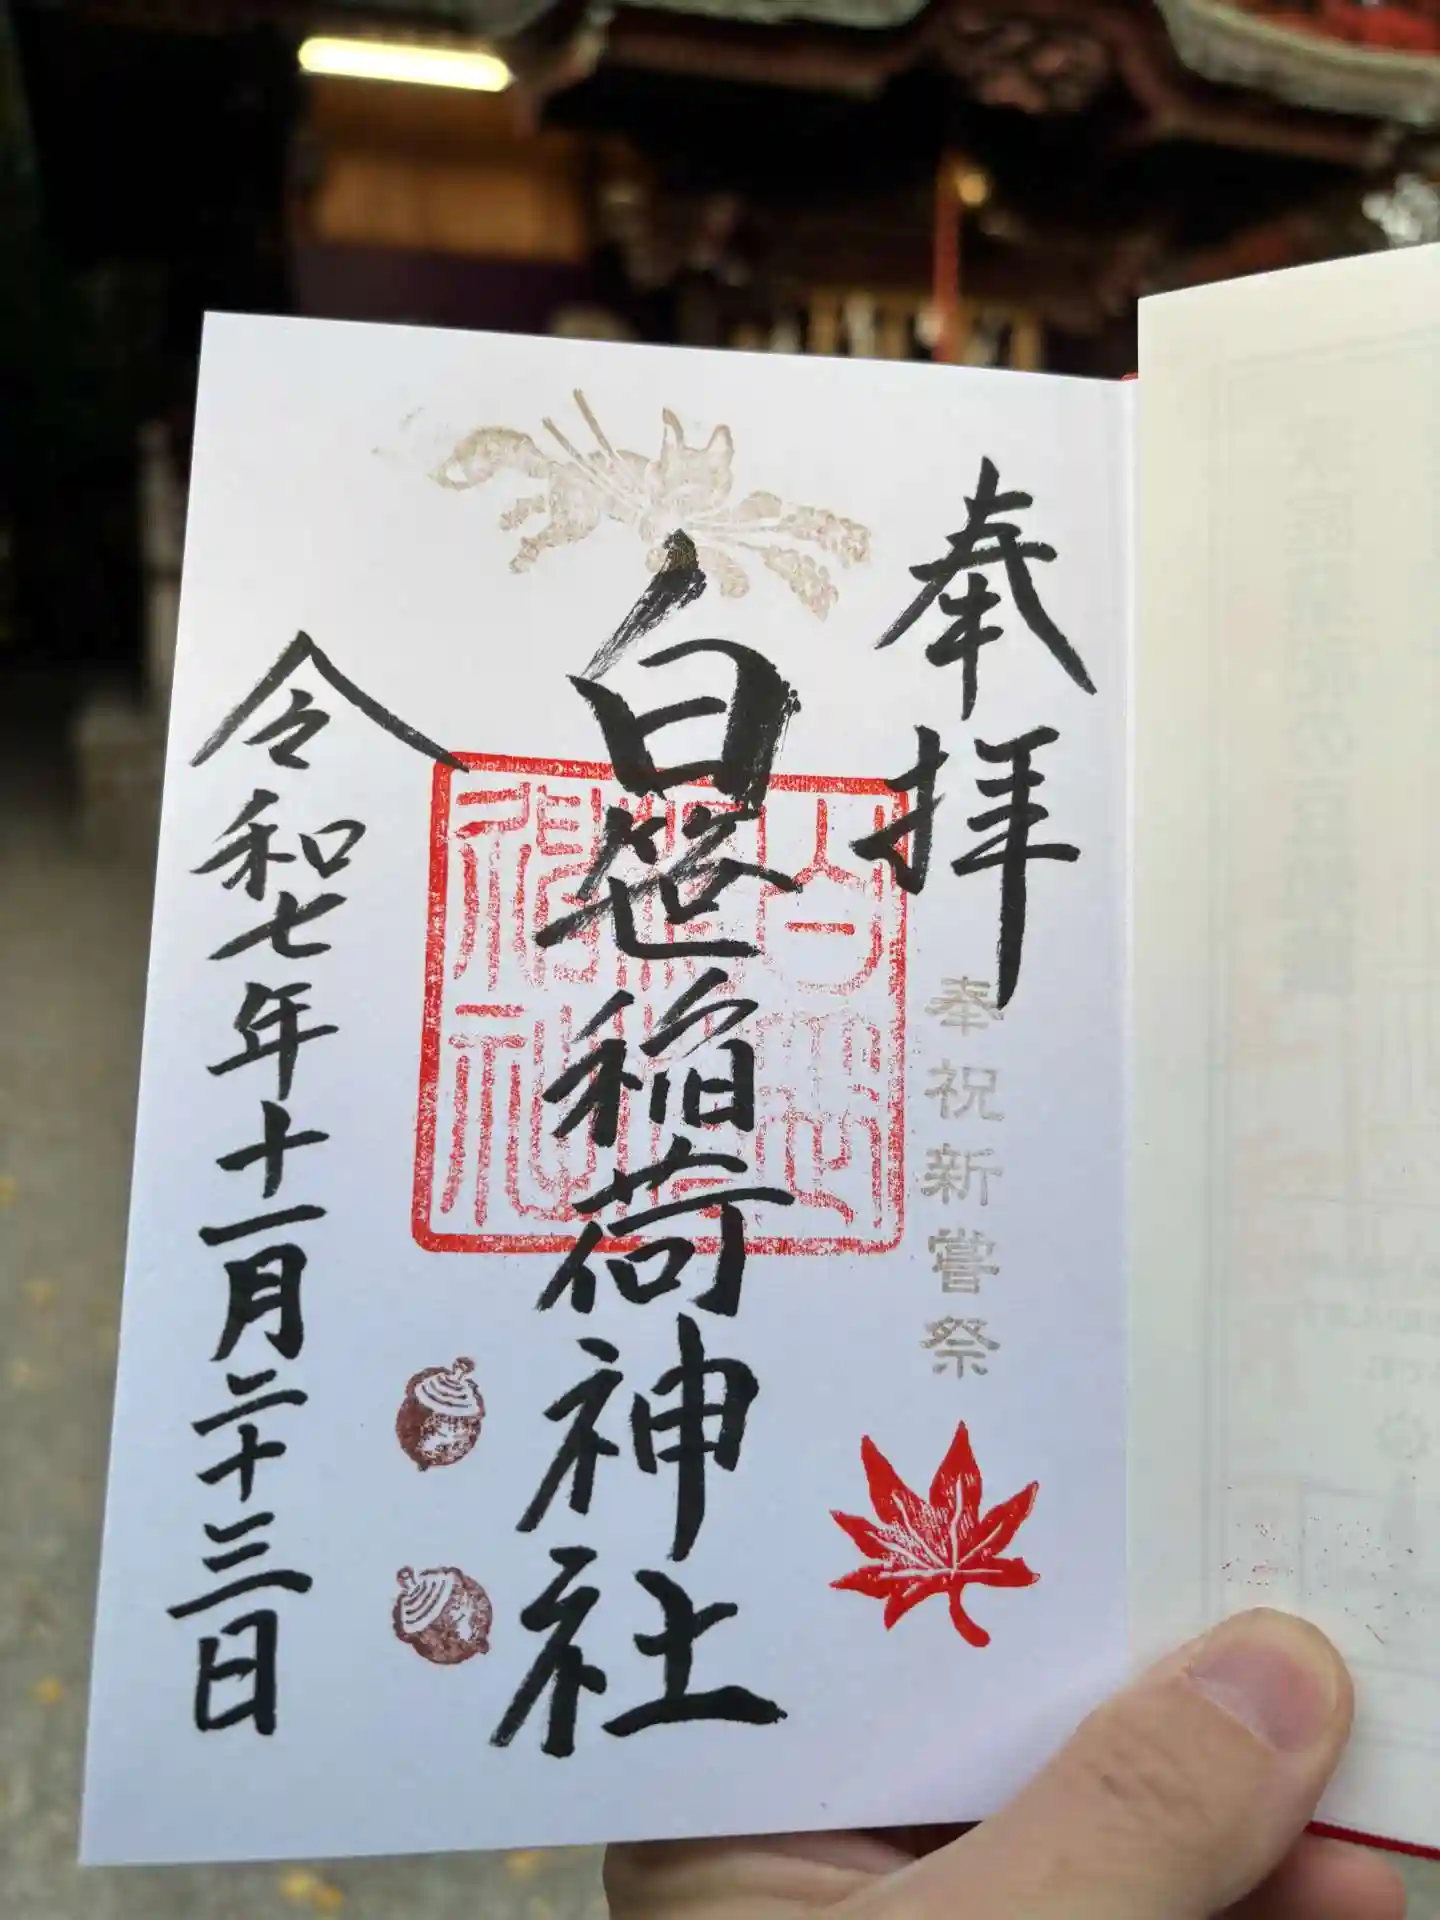 奉拝
奉祝新嘗祭
白笹稲荷神社
白笹稲荷神社
令和七年十一月二十三日